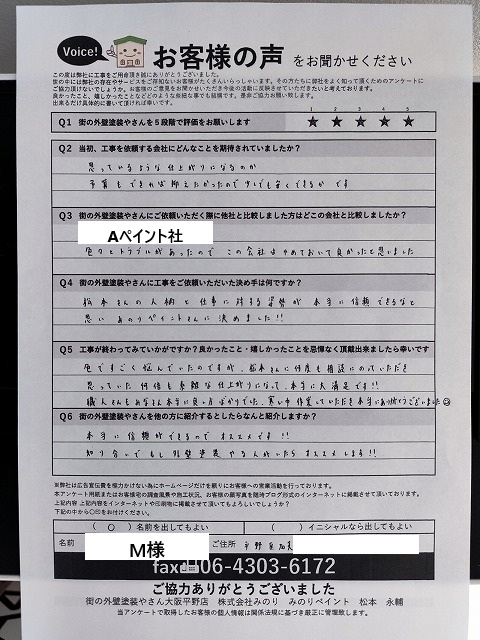 Voice!
お客様の声 をお聞かせください
この度は弊社に工事をご用命頂き誠にありがとうございました。
世の中には弊社の存在やサービスをご存知ないお客様がたくさんいらっしゃいます。その方たちに弊社をよく知って頂くためのアンケートに
ご協力頂けないでしょうか。お客様のご意見をお聞かせいただき今後の活動に反映させていただきたいと考えております。
良かったこと、嬉しかったことなどどのような些細な事でも結構です。是非ご協力お願い致します。
出来るだけ具体的に書いて頂ければ幸いです。
Q1 街の外壁塗装やさんを5段階で評価をお願いします
1 2 3 4 5
★ ★ ★ ★ ★
Q2 当初、工事を依頼する会社にどんなことを期待されていましたか?
思っているような仕上がりになるのか
予算もできれば抑えたかったので少しでも安くできるか です
Q3 街の外壁塗装やさんにご依頼いただく際に他社と比較しました方はどこの会社と比較しましたか?
Aペイント社
色々とトラブルがあったので この会社はやめておいて良かったと思いました
Q4 街の外壁塗装やさんに工事をご依頼いただいた決め手は何ですか?
松本さんの人柄と仕事に対する姿勢が本当に信頼できるなと
思い みのりペイントさんに決めました!!
Q5 工事が終わってみていかがですか?良かったこと・嬉しかったことを忌憚なく頂戴出来ましたら幸いです
色ですごく悩んでいたのですが、松本さんに何度も相談にのっていただき
思っていた何倍も素敵な仕上がりになって、本当に大満足です!!
職人さんもみなさん本当に良い方ばかりでした。寒い中作業していただき本当にありがとうございました☺
Q6 街の外壁塗装やさんを他の方に紹介するとしたらなんと紹介しますか?
本当に信頼ができるのでオススメです!!
知り合いでもし外壁塗装やる人がいたらオススメします!!
※弊社は広告宣伝費を極力かけない為にホームページだけを頼りにお客様への営業活動を行っております。
本アンケート用紙またはお客様宅の調査風景や施工状況、お客様の顔写真を随時ブログ形式のインターネットに掲載させて頂いております。
上記内容 上記内容をインターネットや印刷物に掲載させて頂いてもよろしいでしょうか?
下記の中から〇印をお付けください。
( 〇 ) 名前を出してもよい ( ) イニシャルなら出してもよい
名前 M様 ご住所 平野区加美
fax 06-4303-6172
ご協力ありがとうございました
街の外壁塗装やさん大阪平野店 株式会社みのり みのりペイント 松本 永輔
当アンケートで取得したお客様の個人情報は関係法規に基づき厳正に管理致します。